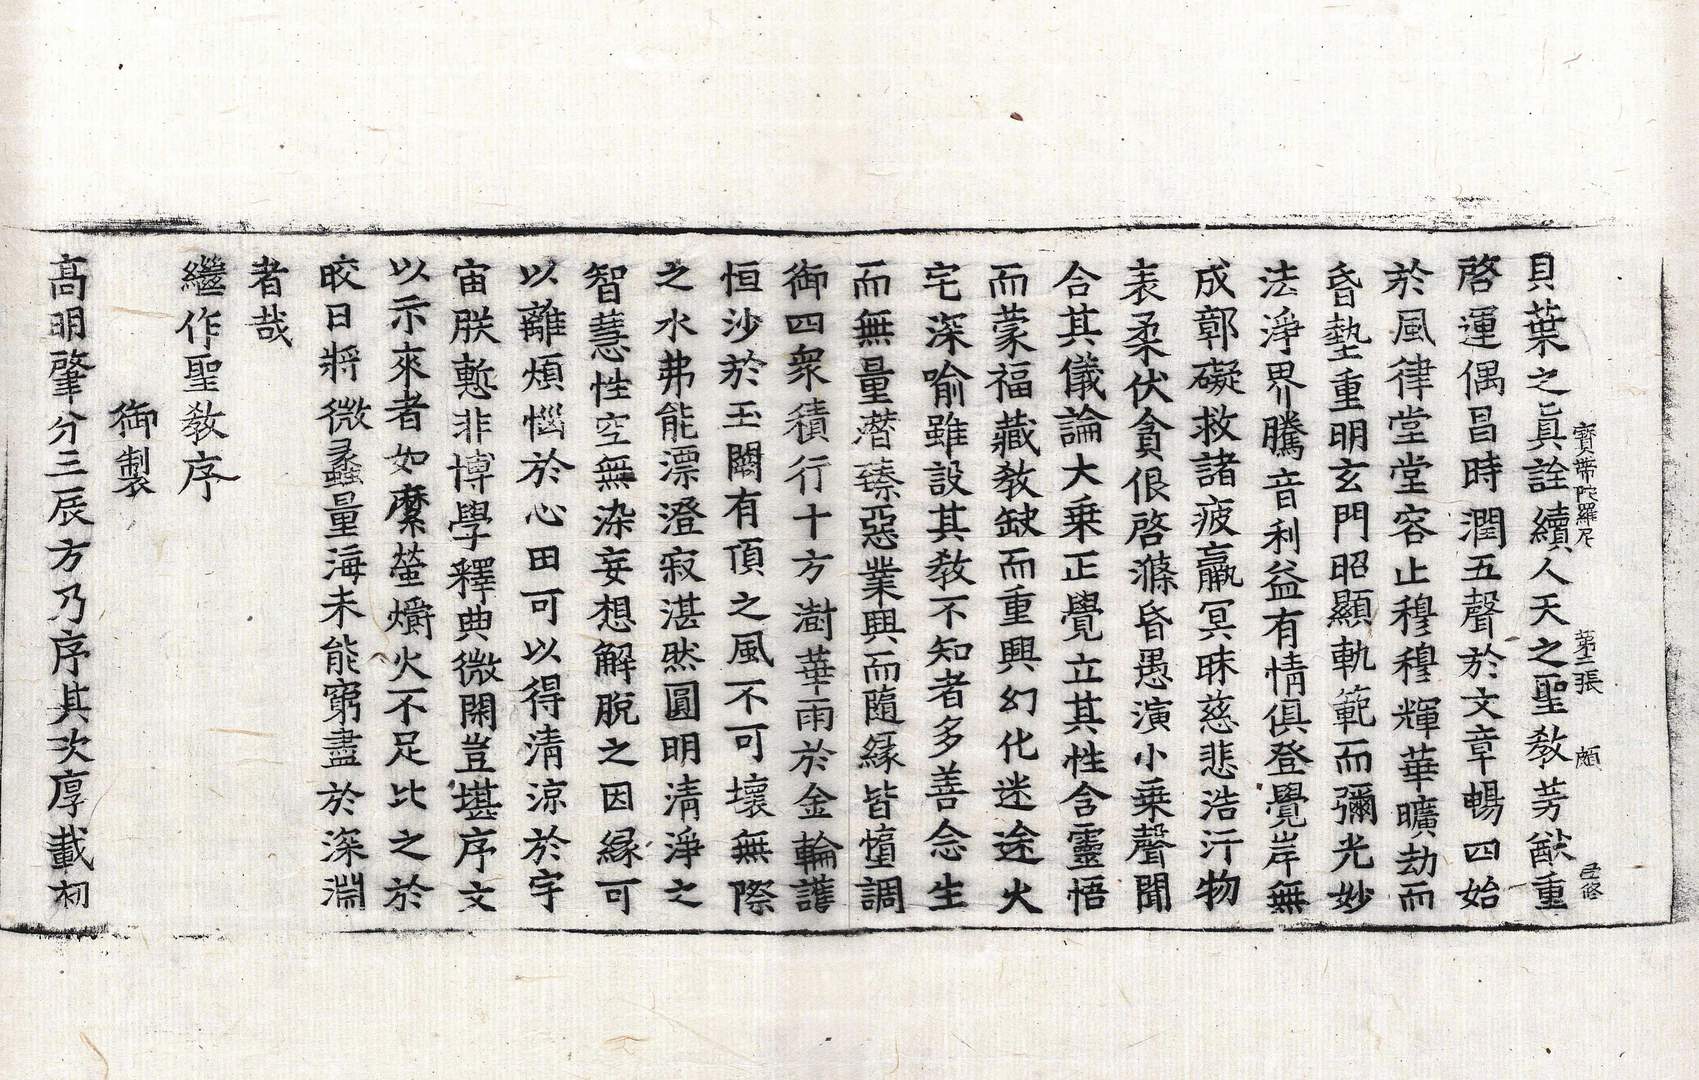 寶帶陀羅尼 第二張 頗
貝葉之眞詮續人天之聖敎芳猷重
啓運偶昌時潤五聲於文章暢四始
於風律堂堂容止穆穆輝華曠劫而
昏墊重明玄門昭顯軌範而彌光妙
法淨界騰音利益有情俱登覺岸無
成郭礙救諸疲羸冥昧慈悲浩汗物
表柔伏貪佷啓滌昏愚演小乗聲聞
合其儀論大乗正覺立其性含靈悟
而蒙福藏敎缺而重興幻化迷途火
宅深喻雖設其敎不知者多善念生
而無量潛臻惡業興而隨緣皆墮調
御四衆積行十方澍華雨於金輪護
恒沙於玉闕有頂之風不可壞無際
之水弗能漂澄寂湛然圓明清淨之
智慧性空無染妄想解脫之因緣可
以離煩惱於心田可以得清涼於宇
宙朕慙非博學釋典微閑豈堪序文
以示來者如縻螢爝火不足比之於
皎日將微蠡量海未能窮盡於深淵
者哉
繼作聖敎序
御製
高明肇分三辰方乃序其次厚載初